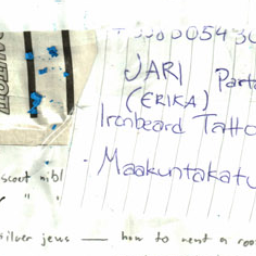 0054 30
JARI Parta
(ERIKA)
Ironbeard Tatto
Maakuntakatu
scout nibl
" "
silver jews — how to rent a roo